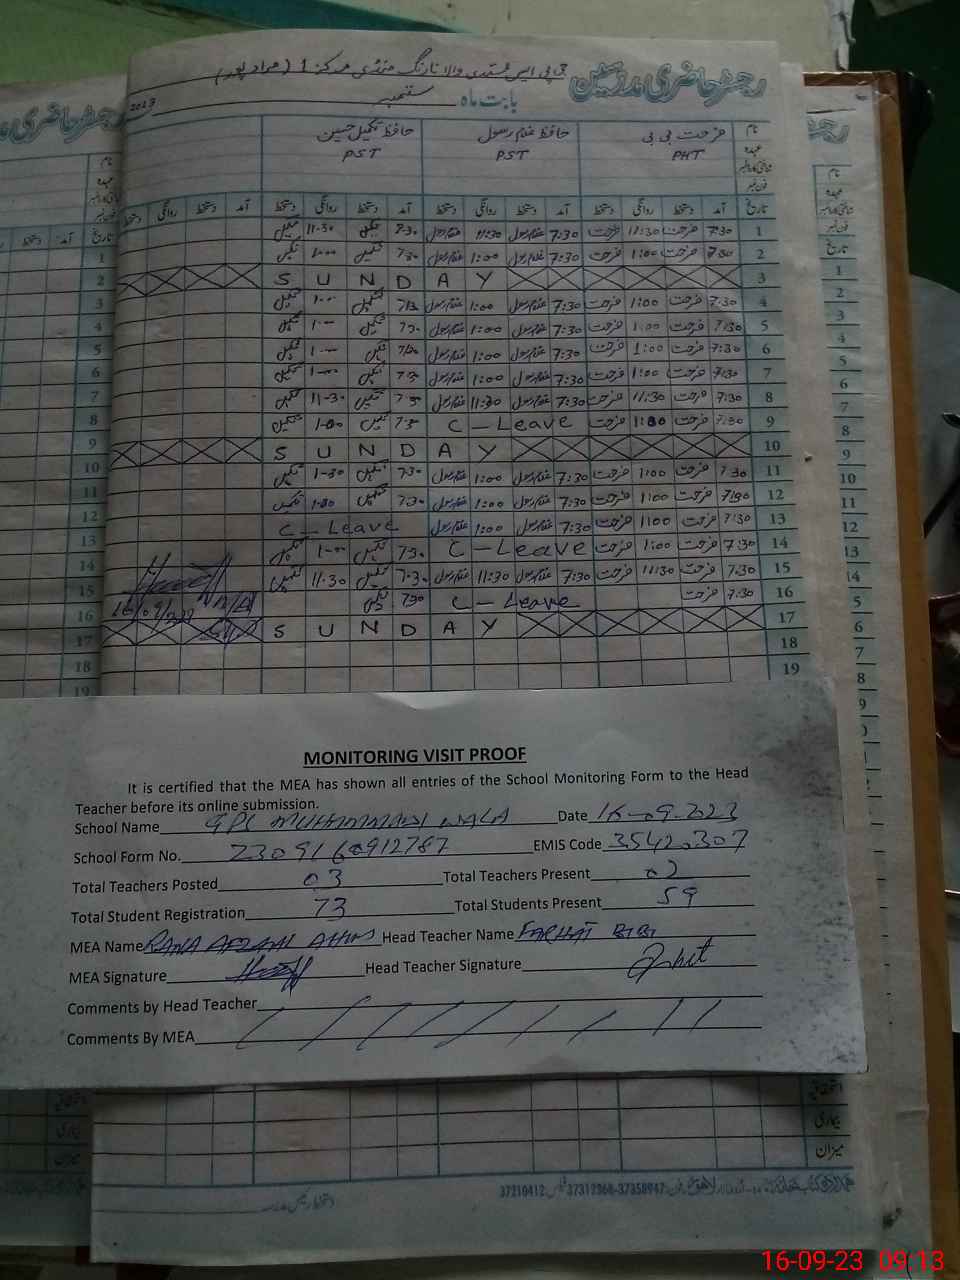 رجسٹر حاضری مدرسین
جی پی ایس محمدی والا نارنگ منڈی مرکز 1 (مراد پور)
بابت ماہ ستمبر 2023
نام فرحت بی بی حافظ غلام رسول حافظ شکیل حسین
عہدہ PHT PST PST
شناختی کارڈ نمبر
فون نمبر
تاریخ آمد دستخط روانگی دستخط آمد دستخط روانگی دستخط آمد دستخط روانگی دستخط آمد دستخط روانگی دستخط
1 7:30 فرحت 11:30 فرحت 7:30 غلام رسول 11:30 غلام رسول 7:30 شکیل 11-30 شکیل
2 7:30 فرحت 1:00 فرحت 7:30 غلام رسول 1:00 غلام رسول 730 شکیل 1-00 شکیل
3 S U N D A Y
4 7:30 فرحت 1:00 فرحت 7:30 غلام رسول 1:00 غلام رسول 730 شکیل 1-00 شکیل
5 7:30 فرحت 1:00 فرحت 7:30 غلام رسول 1:00 غلام رسول 730 شکیل 1-00 شکیل
6 7:30 فرحت 1:00 فرحت 7:30 غلام رسول 1:00 غلام رسول 730 شکیل 1-00 شکیل
7 7:30 فرحت 1:00 فرحت 7:30 غلام رسول 1:00 غلام رسول 730 شکیل 1-00 شکیل
8 7:30 فرحت 11:30 فرحت 7:30 غلام رسول 11:30 غلام رسول 730 شکیل 11-30 شکیل
9 7:30 فرحت 1:00 فرحت C - Leave 730 شکیل 1-00 شکیل
10 S U N D A Y
11 7:30 فرحت 1:00 فرحت 7:30 غلام رسول 1:00 غلام رسول 7.30 شکیل 1-30 شکیل
12 7:30 فرحت 1:00 فرحت 7:30 غلام رسول 1:00 غلام رسول 7.30 شکیل 1-00 شکیل
13 7:30 فرحت 1:00 فرحت 7:30 غلام رسول 1:00 غلام رسول C - Leave
14 7:30 فرحت 1:00 فرحت C - Leave 7.30 شکیل 1-00 شکیل
15 7:30 فرحت 11:30 فرحت 7:30 غلام رسول 11:30 غلام رسول 7.30 شکیل 11.30 شکیل
16 7:30 فرحت C - Leave 7.30 شکیل
17 S U N D A Y
18
19
MONITORING VISIT PROOF
It is certified that the MEA has shown all entries of the School Monitoring Form to the Head
Teacher before its online submission.
School Name GPS MUHAMMADI WALA Date 16-09-2023
School Form No. 2309160912787 EMIS Code 35420307
Total Teachers Posted 03 Total Teachers Present 02
Total Student Registration 73 Total Students Present 59
MEA Name RANA Head Teacher Name FARHAT BIBI
MEA Signature Head Teacher Signature
Comments by Head Teacher
Comments By MEA
اتفاقیہ
بیماری
میزان
37210412 37312368-37358947
16-09-23 09:13